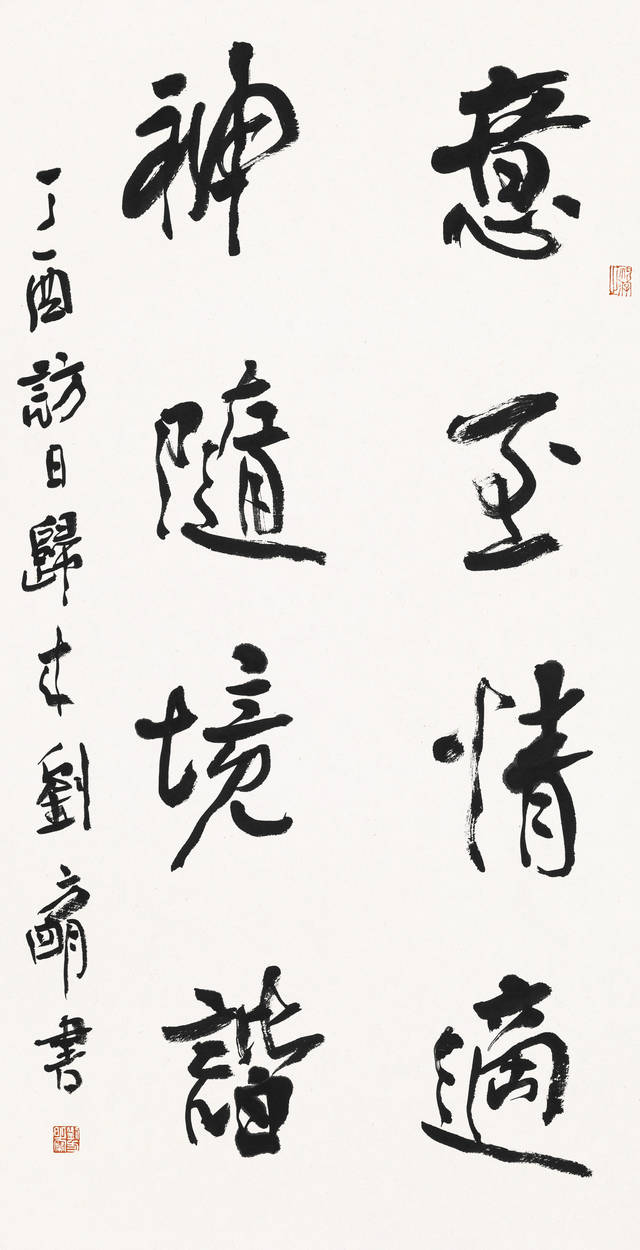 意至情適
神隨境諧
丁酉訪日歸来劉方明書